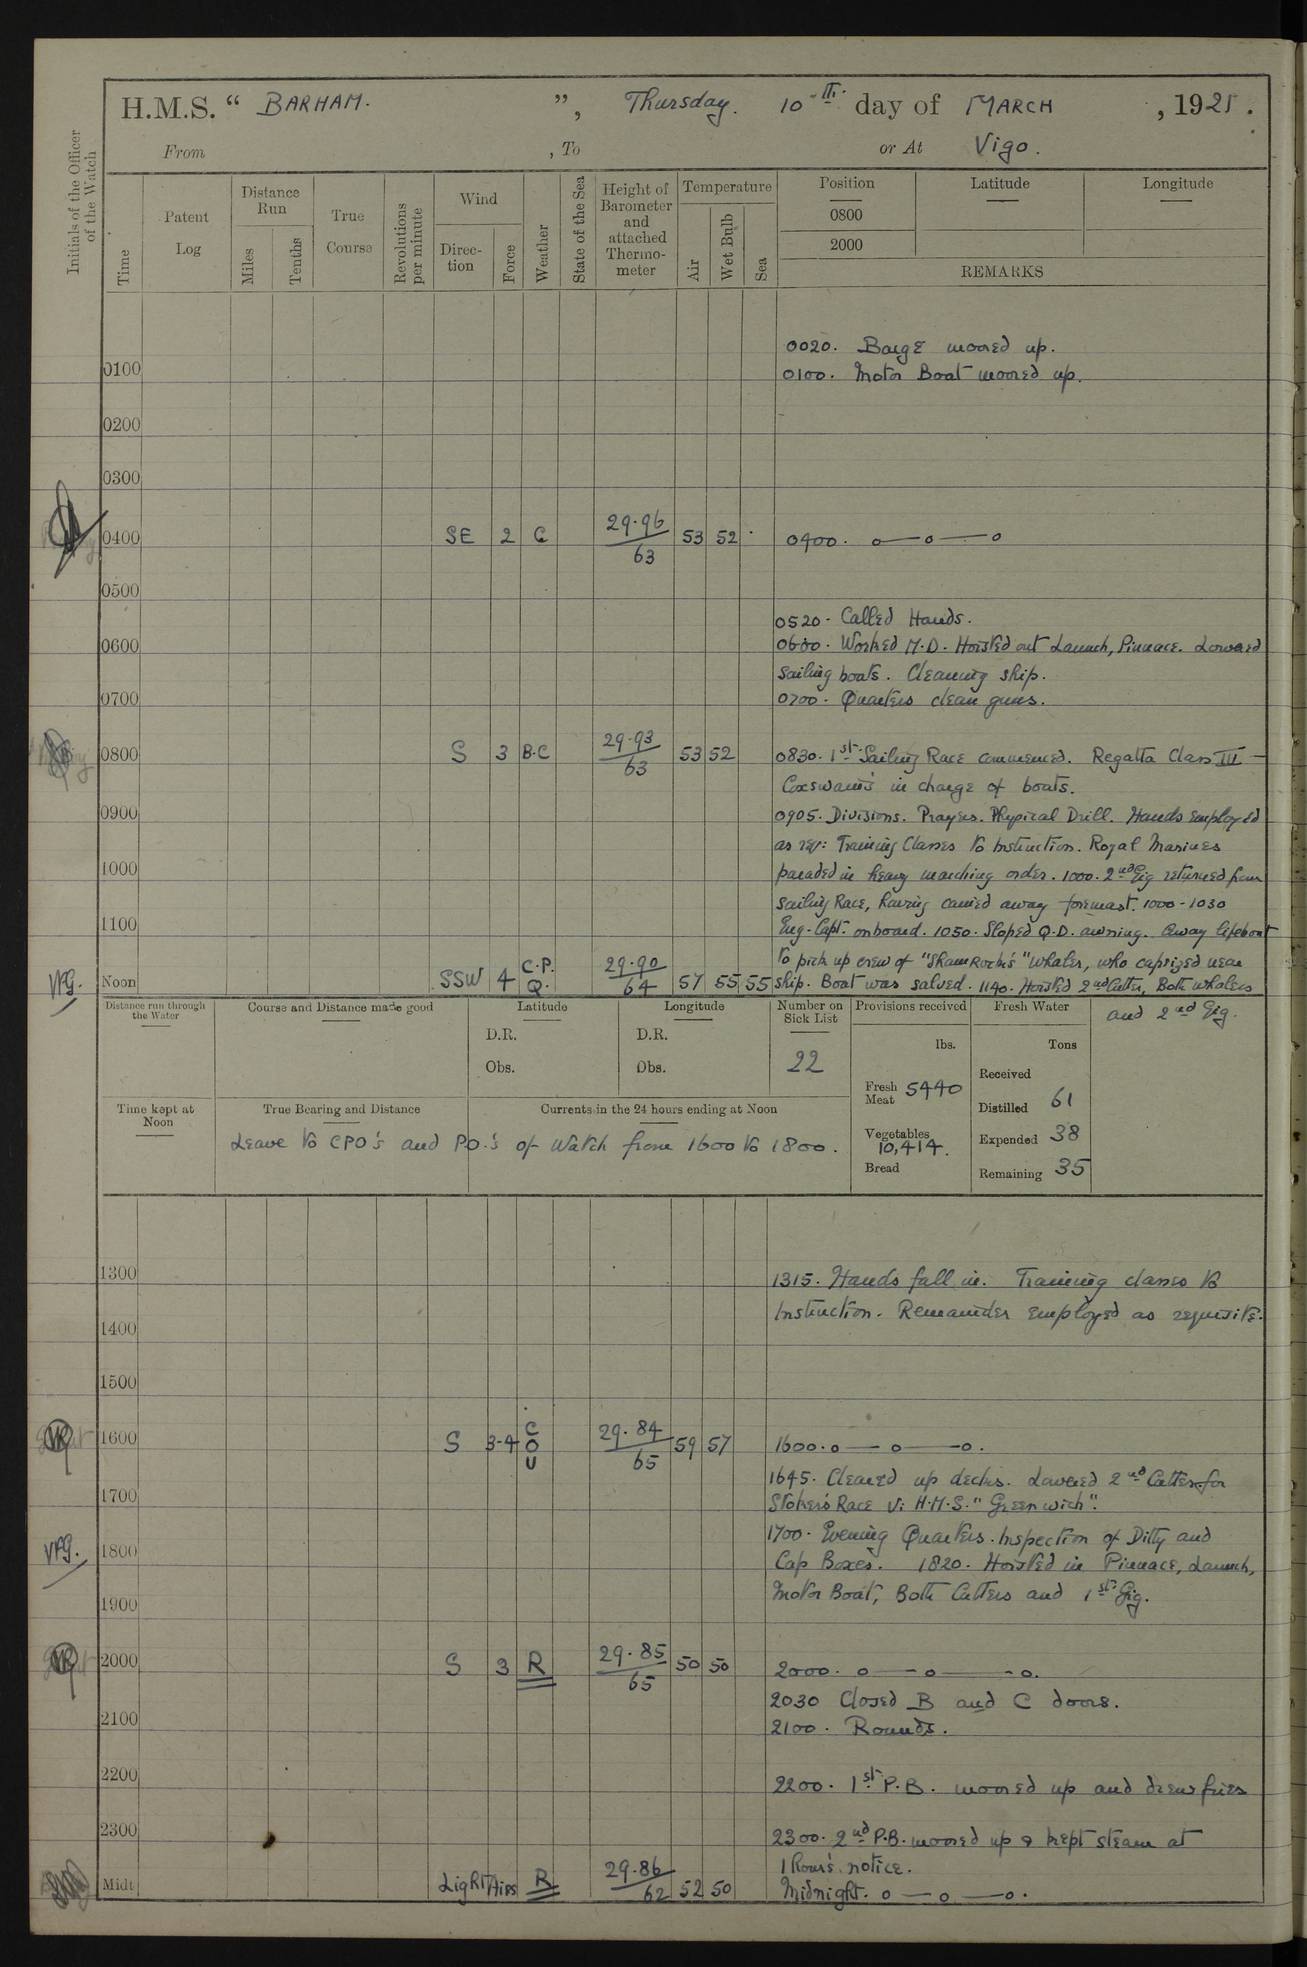 H.M.S. “ BARHAM. ”, Thursday. 10th. day of MARCH , 1921.
From , To or At Vigo.
Initials of the Officer of the Watch
Time
Patent Log
Distance Run
Miles
Tenths
True Course
Revolutions per minute
Wind
Direc-tion
Force
Weather
State of the Sea
Height of Barometer and attached Thermo-meter
Temperature
Air
Wet Bulb
Sea
Position Latitude Longitude
0800
2000
REMARKS
0020. Barge moored up.
0100 0100. Motor Boat moored up.
0200
0300
0400 SE 2 C 29.96/63 53 52 0400. o — o — o
0500
0520. Called Hands.
0600 0600. Worked M.D. Hoisted out Launch, Pinnace. Lowered
Sailing boats. Cleaning ship.
0700 0700. Quarters clean guns.
0800 S 3 B.C 29.93/63 53 52 0830. 1st. Sailing Race commenced. Regatta Class III –
Coxswains in charge of boats.
0900 0905. Divisions. Prayers. Physical Drill. Hands employed
as req: Training Classes to Instruction. Royal Marines
1000 paraded in heavy marching order. 1000. 2nd Gig returned from
Sailing Race, having carried away foremast. 1000-1030
1100 Eng-Capt. onboard. 1050. Sloped Q.D. awning. Away lifeboat
to pick up crew of "Shamrock's" Whaler, who capsized near
VFG. Noon SSW 4 C.P.Q. 29.90/64 57 55 55 ship. Boat was salved. 1140. Hoisted 2nd Cutter, Both whalers
and 2nd Gig.
Distance run through the Water
Course and Distance made good
Latitude
D.R.
Obs.
Longitude
D.R.
Obs.
Number on Sick List
22
Provisions received
lbs.
Fresh Meat 5440
Vegetables 10,414.
Bread
Fresh Water
Tons
Received
Distilled 61
Expended 38
Remaining 35
Time kept at Noon
True Bearing and Distance
Currents in the 24 hours ending at Noon
Leave to CPO's and PO.'s of Watch from 1600 to 1800.
1300 1315. Hands fall in. Training classes to
1400 Instruction. Remainder employed as requisite.
1500
1600 S 3-4 C O U 29.84/65 59 57 1600. o — o — o.
1645. Cleared up decks. Lowered 2nd Cutter for
1700 Stoker's Race v: H.M.S. "Greenwich".
1700. Evening Quarters. Inspection of Ditty and
VFG. 1800 Cap Boxes. 1820. Hoisted in Pinnace, Launch,
1900 Motor Boat, Both Cutters and 1st. Gig.
2000 S 3 R 29.85/65 50 50 2000. o — o — o.
2030 Closed B and C doors.
2100 2100. Rounds.
2200 2200. 1st. P.B. moored up and drew fires
2300 2300. 2nd P.B. moored up & kept steam at
1 hour's notice.
Midt Light Airs R 29.86/62 52 50 Midnight. o — o — o.